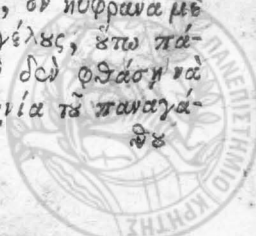 ὃν ηὔφρανα με
γέλȣς, ὅτω πά-
δὲν φθάσῃ νὰ
νία τȣ͂ παναγά-
θȣ
ΠΑΝΕΠΙΣΤΗΜΙΟ ΚΡΗΤΗΣ